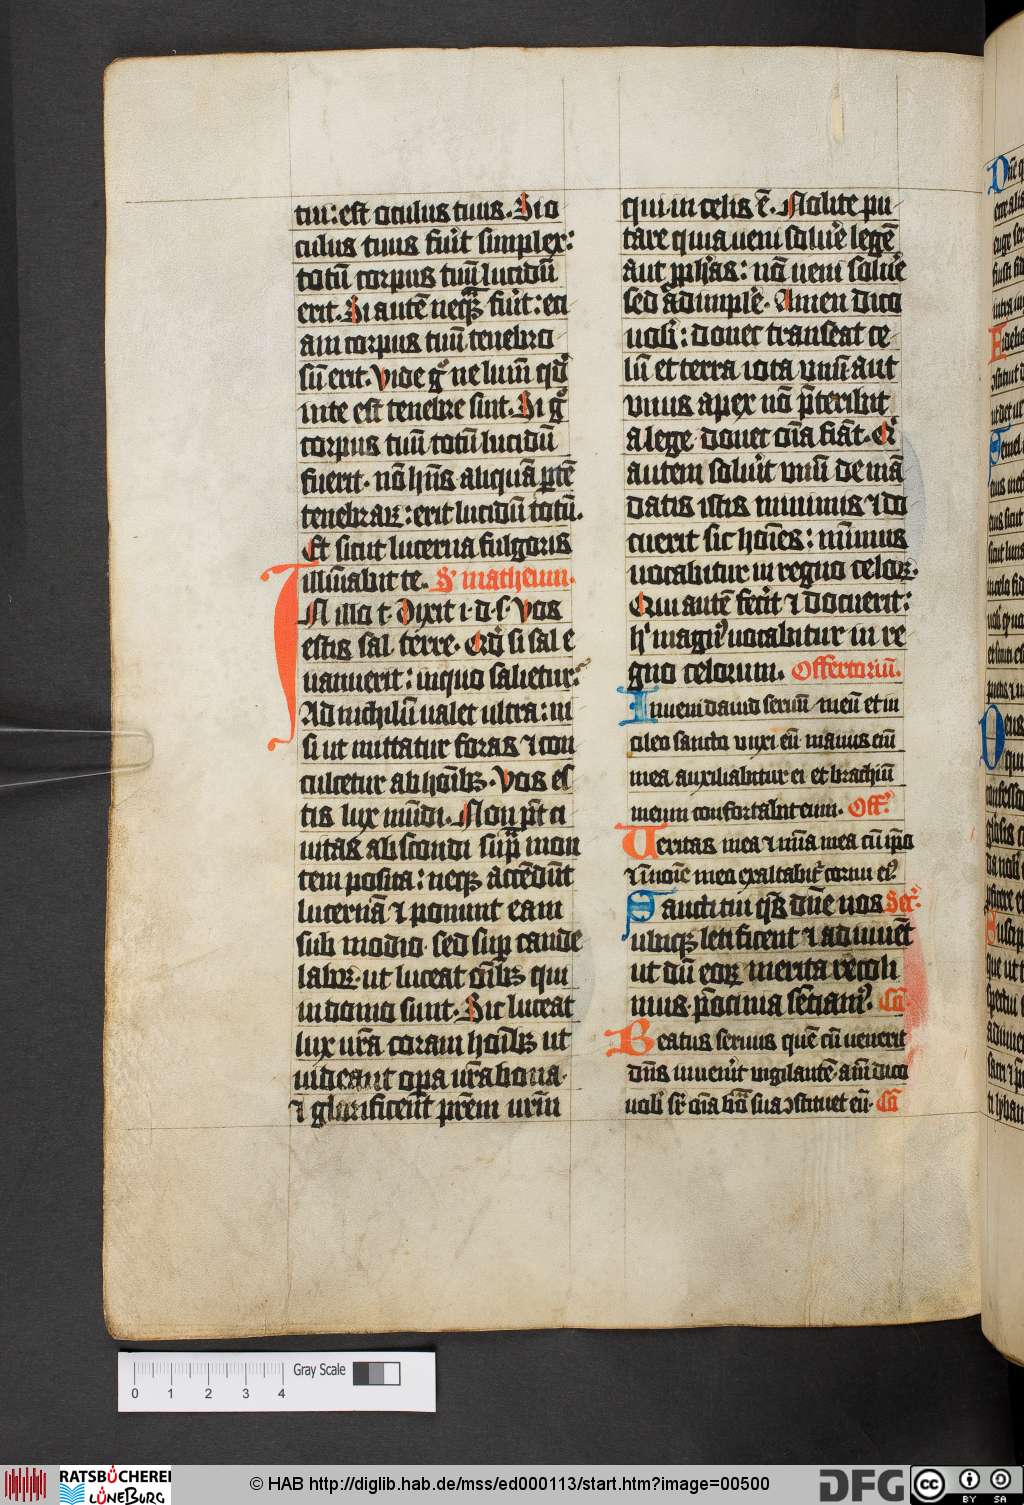 tui: est oculus tuus. Si o
culus tuus fuit̾ simplex:
totū corpus tuū lucidū
erit. Si autē neqꝫ fuit̾: eci
am corpus tuū tenebro
sū erit. Vide gͦ ne lumē qd̾
in te est tenebre sint. Si gͦ
corpus tuū totū lucidū
fuerit. nō hn̄s aliquā ꝑtē
tenebraꝝ: erit lucidū totū.
Et sicut lucerna fulgoris
illuīabit te. S' matheum.
IN illo t. Dixit i. d. s. Vos
estis sal terre. Qd̾ si sal e
uanuerit: in quo salietur?
Ad nichilū ualet ultra: ni
si ut mittatur foras ⁊ con
culcetur ab hoībꝫ. Vos es
tis lux mūdi. Non pt̄ ci
uitas abscondi sup̄ mon
tem posita: neqꝫ accēdūt
lucernā ⁊ ponunt eam
sub modio. sed sup̄ cande
labꝝ. ut luceat oībꝫ qui
in domo sunt. Sic luceat
lux ur̄a coram hoībꝫ ut
uideant oꝑa ur̄a bona.
⁊ glorificent pr̄em ur̄m
qui in celis ē. Nolite pu
tare quia ueni solu̾e legē
aut ꝓph̾as: nō ueni solu̾e
sed adimpl̾e. Amen dico
uob̾: donec transeat ce
lū et terra iota unū aut
unus apex nō p̄teribit
a lege donec oīa fiāt. Qi̾
autem solu̾it unū de mā
datis istis minimis ⁊ do
cuerit sic hoīes: minimus
uocabitur in regno celoꝝ.
Qui autē fec̾it ⁊ docuerit:
h' magn̾ uocabitur in re
gno celorum. Offertoriū.
Inueni dauid seruū meū et in
oleo sancto unxi eū manus eīm
mea auxiliabitur ei et brachiū
meum confortabit eum. Off̾.
Veritas mea ⁊ mīa mea cū ip̄o
⁊ ī noīe meo exaltabit̾ cornu ei̾.
Sancti tui qs̄ dn̄e nos Secr̾.
ubiqꝫ letificent ⁊ adiuuēt
ut dū eoꝝ merita recoli
mus. pr̄ocinia sēciam̾. Cō.
Beatus seruus quē cū uenerit
dn̄s inuenit̾ uigilantē. amē dico
uob̾ sr̄ oīa boā sua ↄstituet eū. Cō
Gray Scale
0 1 2 3 4
RATSBÜCHEREI
LÜNEBURG
© HAB http://diglib.hab.de/mss/ed000113/start.htm?image=00500
DFG
cc
BY SA